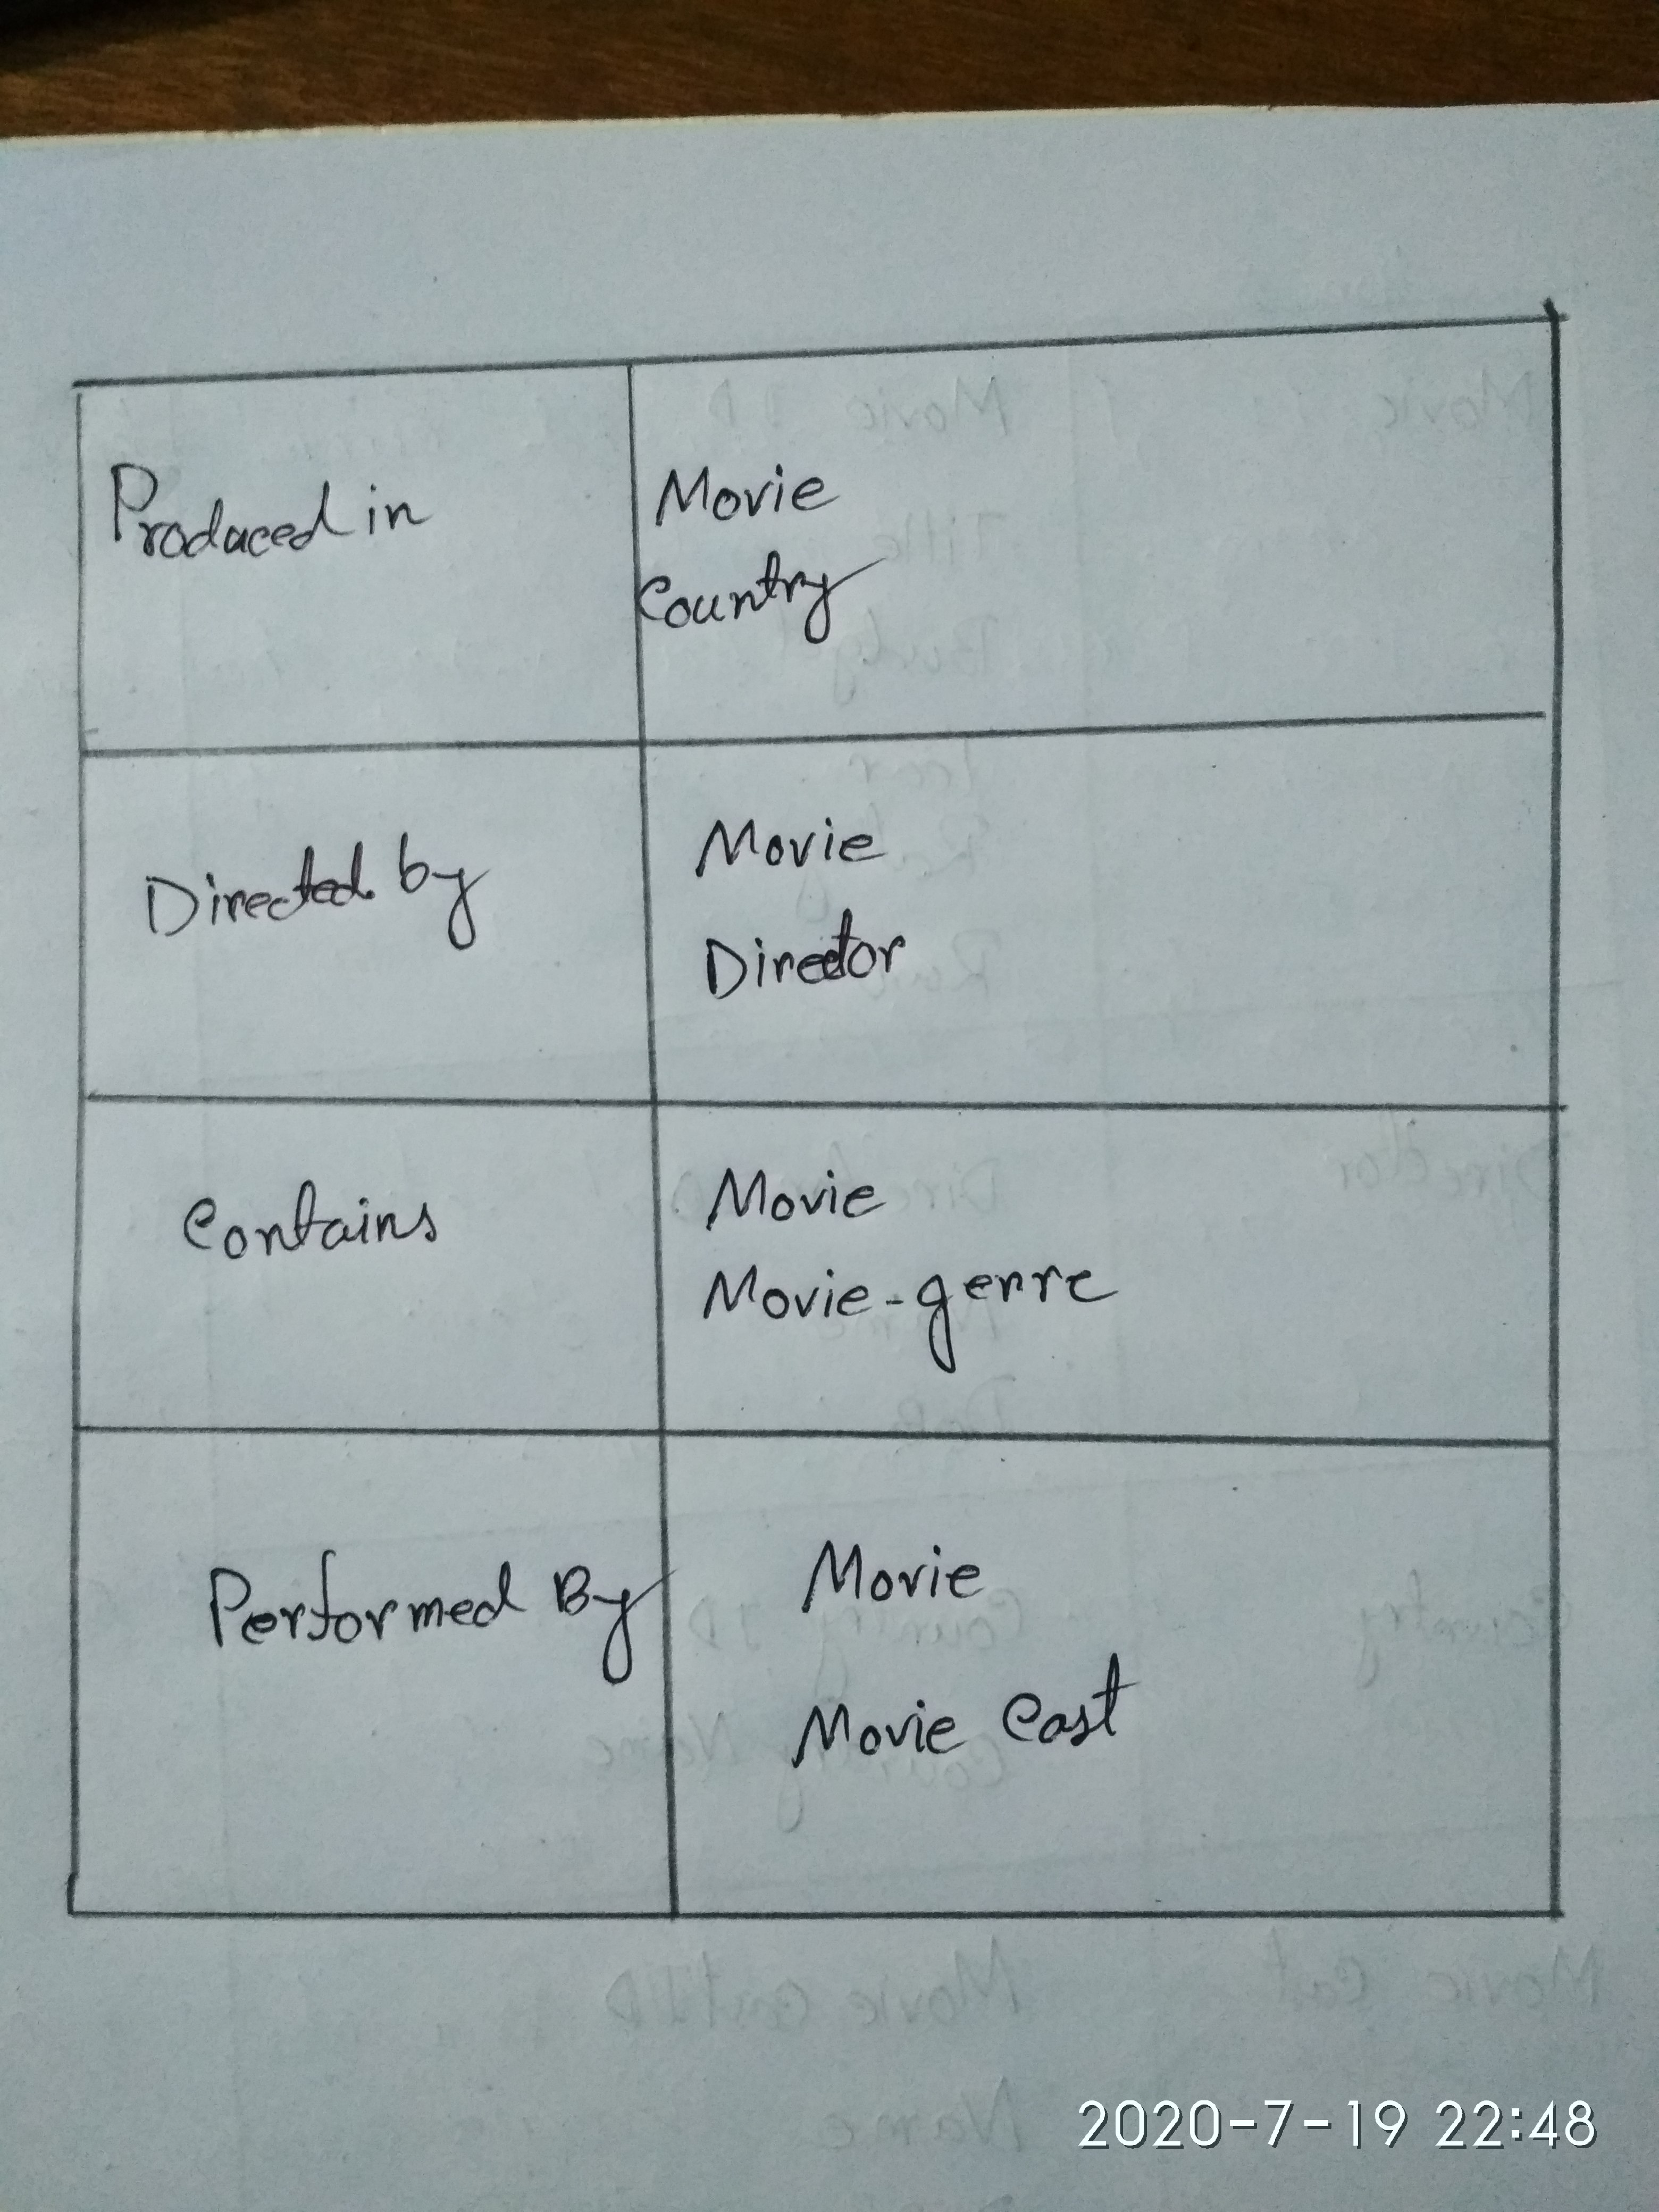 Produced in
Movie
Country
Directed by
Movie
Director
Contains
Movie
Movie-genre
Performed By
Movie
Movie Cast
2020-7-19 22:48